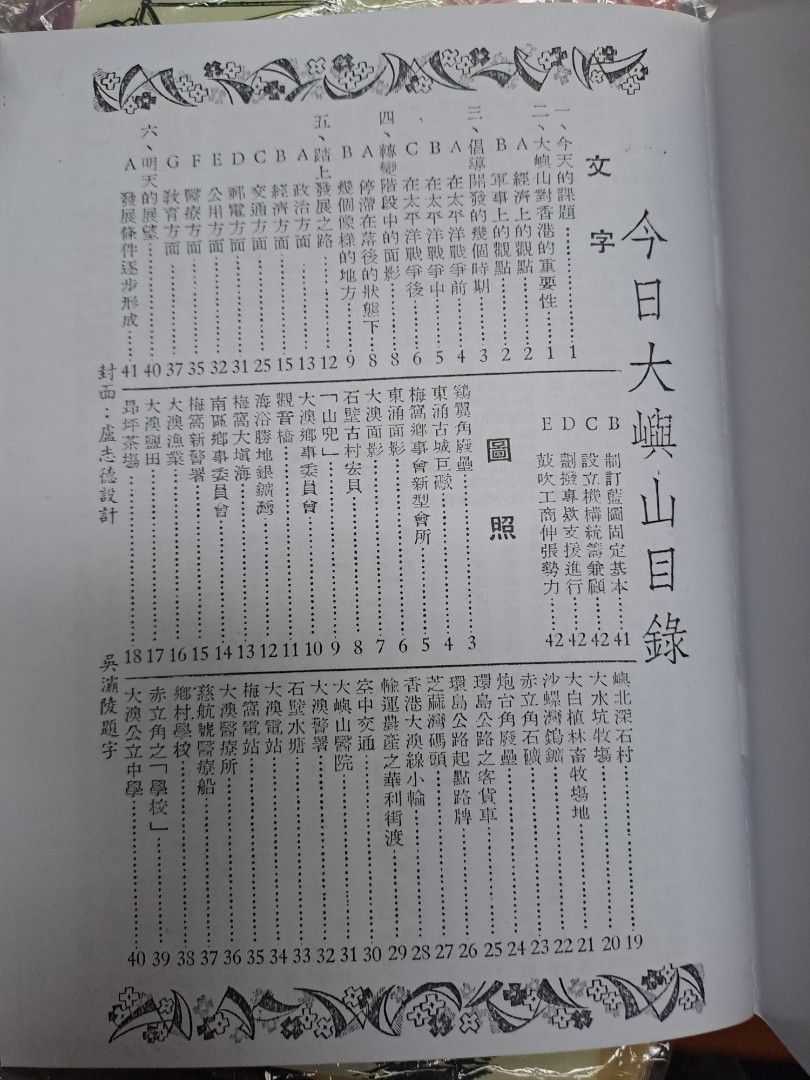 今日大嶼山目錄
文字
一、今天的課題……1
二、大嶼山對香港的重要性……1
A 經濟上的觀點……2
B 軍事上的觀點……2
三、倡導開發的幾個時期……3
A 在太平洋戰爭前……4
B 在太平洋戰爭中……5
C 在太平洋戰爭後……6
四、轉變階段中的面影……8
A 停滯在落後的狀態下……8
B 幾個像樣的地方……9
五、踏上發展之路……12
A 政治方面……13
B 經濟方面……15
C 交通方面……25
D 郵電方面……31
E 公用方面……32
F 醫療方面……35
G 教育方面……37
六、明天的展望……40
A 發展條件逐步形成……41
B 制訂藍圖固定基本……41
C 設立機構統籌兼顧……42
D 劃撥專欵支援進行……42
E 鼓吹工商伸張勢力……42
圖照
鷄翼角廢壘……3
東涌古城巨礮……4
梅窩鄉事會新型會所……5
東涌面影……6
大澳面影……7
石壁古村宏貝……8
「山兜」……9
大澳鄉事委員會……10
觀音橋……11
海浴勝地銀鑛灣……12
梅窩大塡海……13
南區鄉事委員會……14
梅窩新警署……15
大澳漁業……16
大澳鹽田……17
昂坪茶塲……18
嶼北深石村……19
大水坑牧塲……20
大白植林畜牧塲地……21
沙螺灣鎢鑛……22
赤立角石礦……23
炮台角廢壘……24
環島公路之客貨車……25
環島公路起點路牌……26
芝蔴灣碼頭……27
香港大澳線小輪……28
輸運農產之華利街渡……29
空中交通……30
大嶼山醫院……31
大澳警署……32
石壁水塘……33
大澳電站……34
梅窩電站……35
大澳醫療所……36
慈航號醫療船……37
鄉村學校……38
赤立角之「學校」……39
大澳公立中學……40
封面：盧志德設計
吳灞陵題字